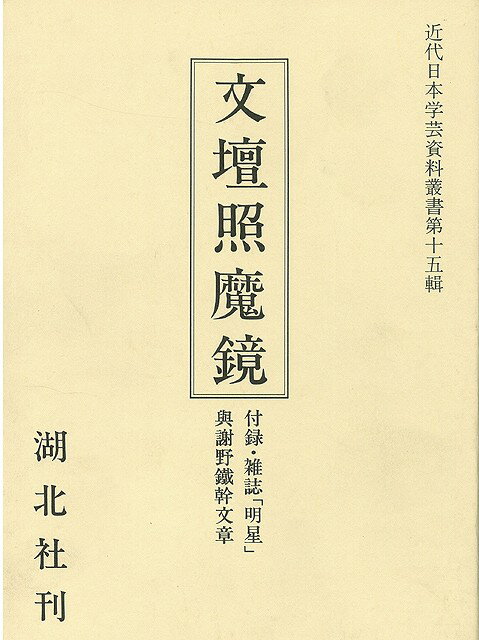 近代日本学芸資料叢書第十五輯
文壇照魔鏡
付録・雑誌「明星」
與謝野鐵幹文章
湖北社刊